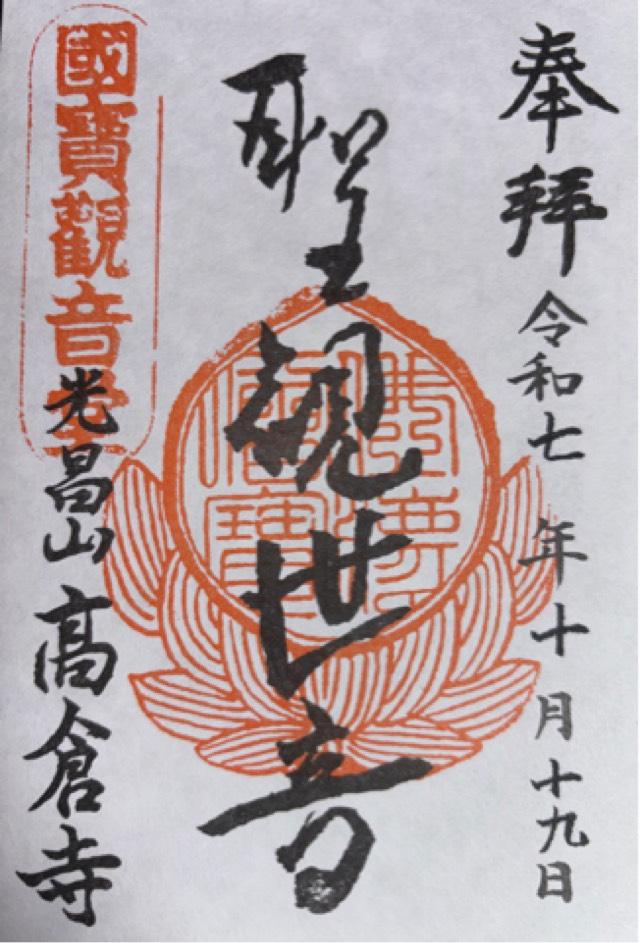 奉拜
令和七年十月十九日
聖観世音
國寶觀音堂
光昌山高倉寺